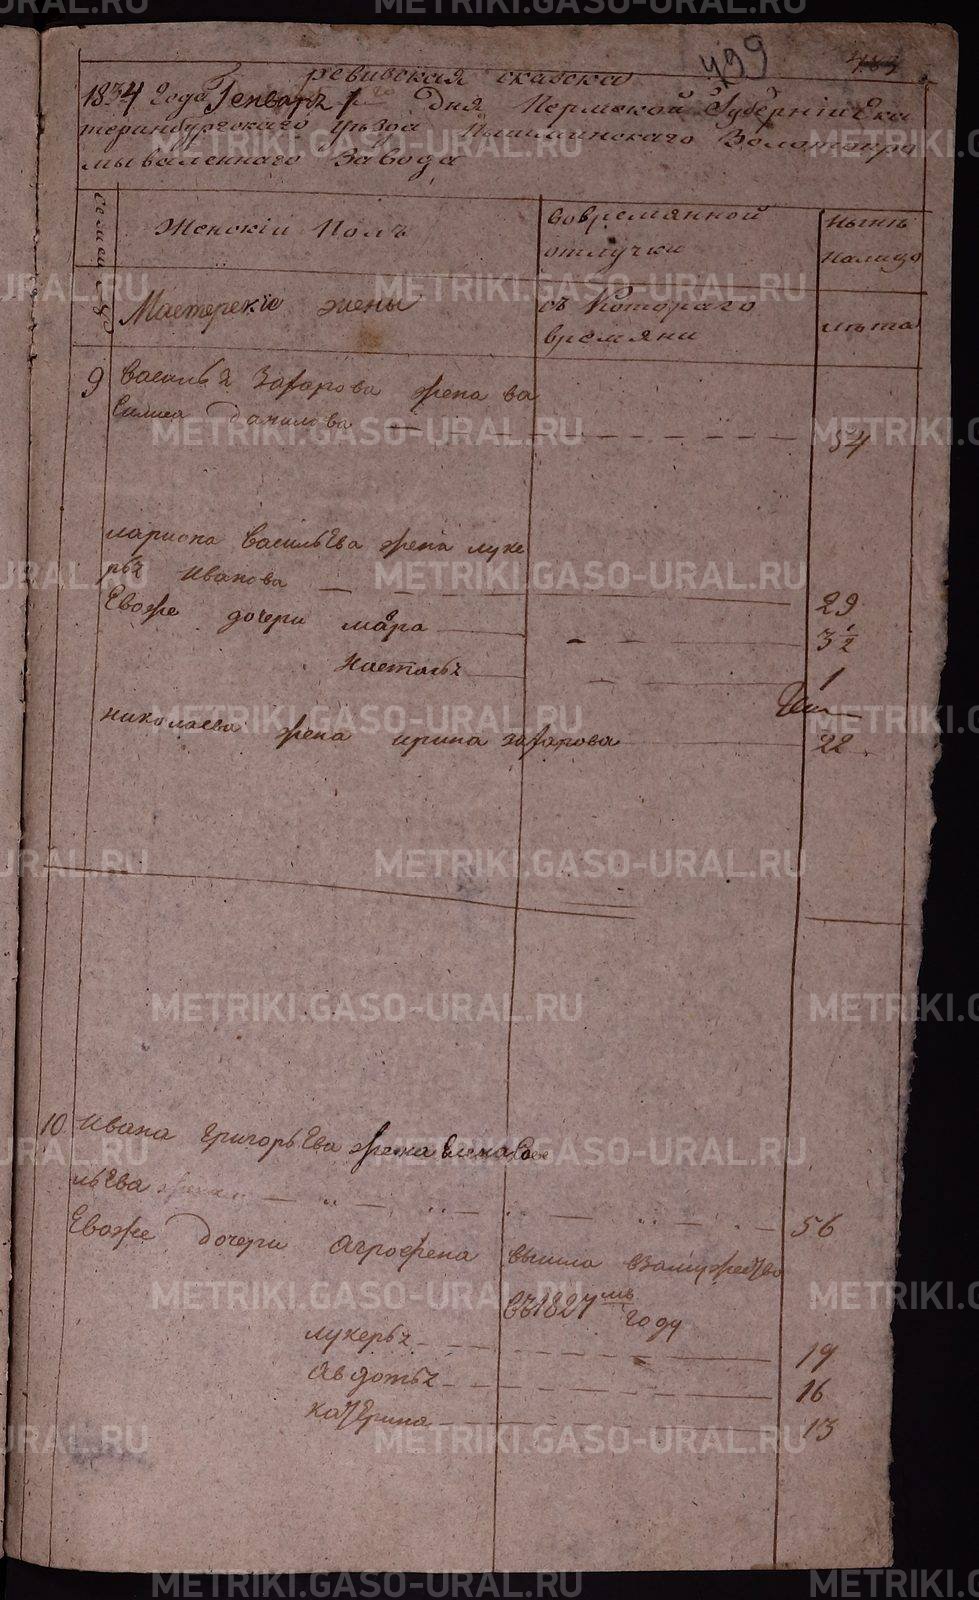 499
ревизская сказска
1834 года Генваря 1го дня Пермской Губернiи Ека
теринбургскаго уезда Пышминскаго Золотопро
мываленнаго Завода
семей
Женскiи Полъ
Совремянной отлучки
ныне налицо
Мастерскiе жены
съ Котораго времяни
лѣта
9 василья Захарова жена ва
силиса данилова — 54
лариона васильева жена луке
рья иванова — 29
Евоже дочери мавра — 3 1/2
насталья — 1
николаева жена ирина захарова — 22
10 ивана григорьева жена Елена васи
льева — 56
Евоже дочери Агрофена вышла взамужество
въ 1827мъ году
лукерья — 19
Авдотья — 16
катерина — 13
METRIKI.GASO-URAL.RU